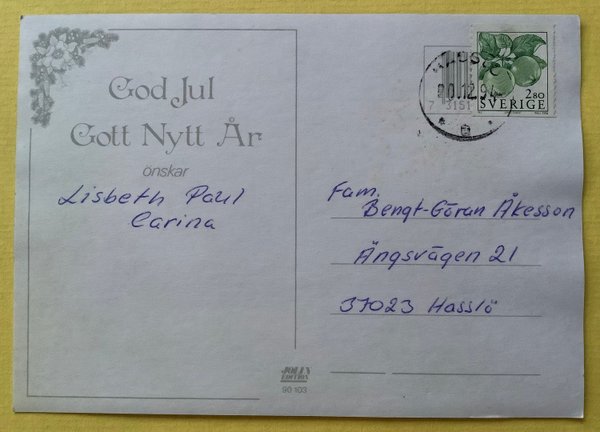 God Jul
Gott Nytt År
önskar
Lisbeth Paul
Carina
20.12.94
2.80
SVERIGE
7 3151
Fam.
Bengt-Göran Åkesson
Ängsvägen 21
37023 Hasslö
JOLLY
EDITION
90 103